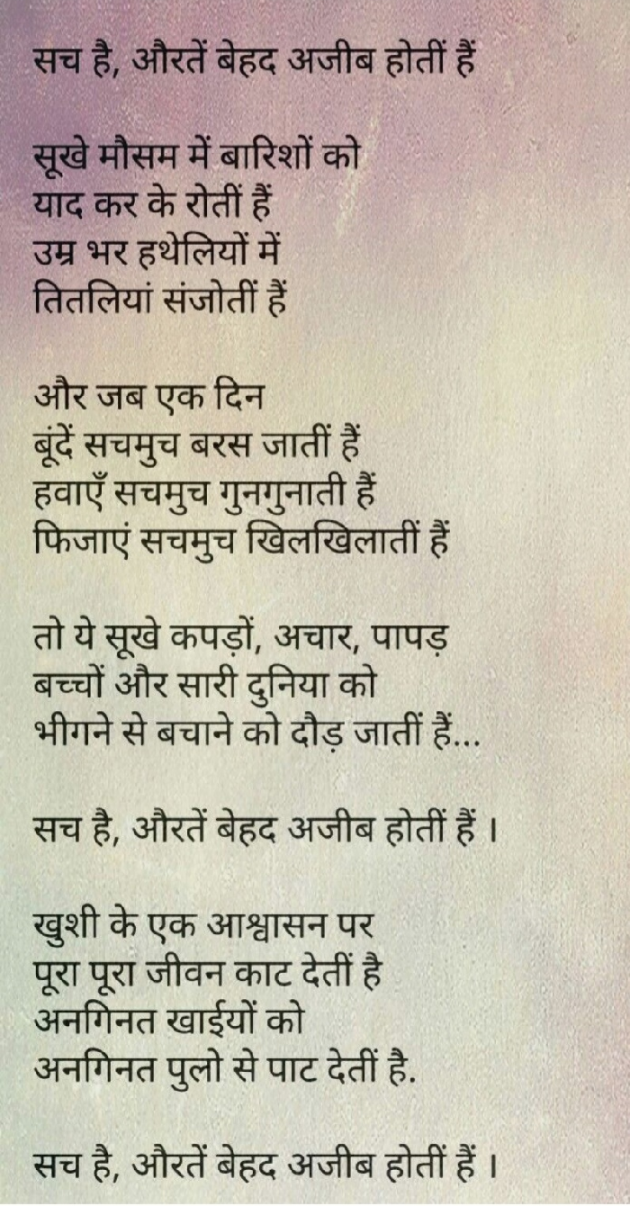 सच है, औरतें बेहद अजीब होतीं हैं
सूखे मौसम में बारिशों को
याद कर के रोतीं हैं
उम्र भर हथेलियों में
तितलियां संजोतीं हैं
और जब एक दिन
बूंदें सचमुच बरस जातीं हैं
हवाएँ सचमुच गुनगुनाती हैं
फिजाएं सचमुच खिलखिलातीं हैं
तो ये सूखे कपड़ों, अचार, पापड़
बच्चों और सारी दुनिया को
भीगने से बचाने को दौड़ जातीं हैं...
सच है, औरतें बेहद अजीब होतीं हैं ।
खुशी के एक आश्वासन पर
पूरा पूरा जीवन काट देतीं है
अनगिनत खाईयों को
अनगिनत पुलो से पाट देतीं है.
सच है, औरतें बेहद अजीब होतीं हैं ।